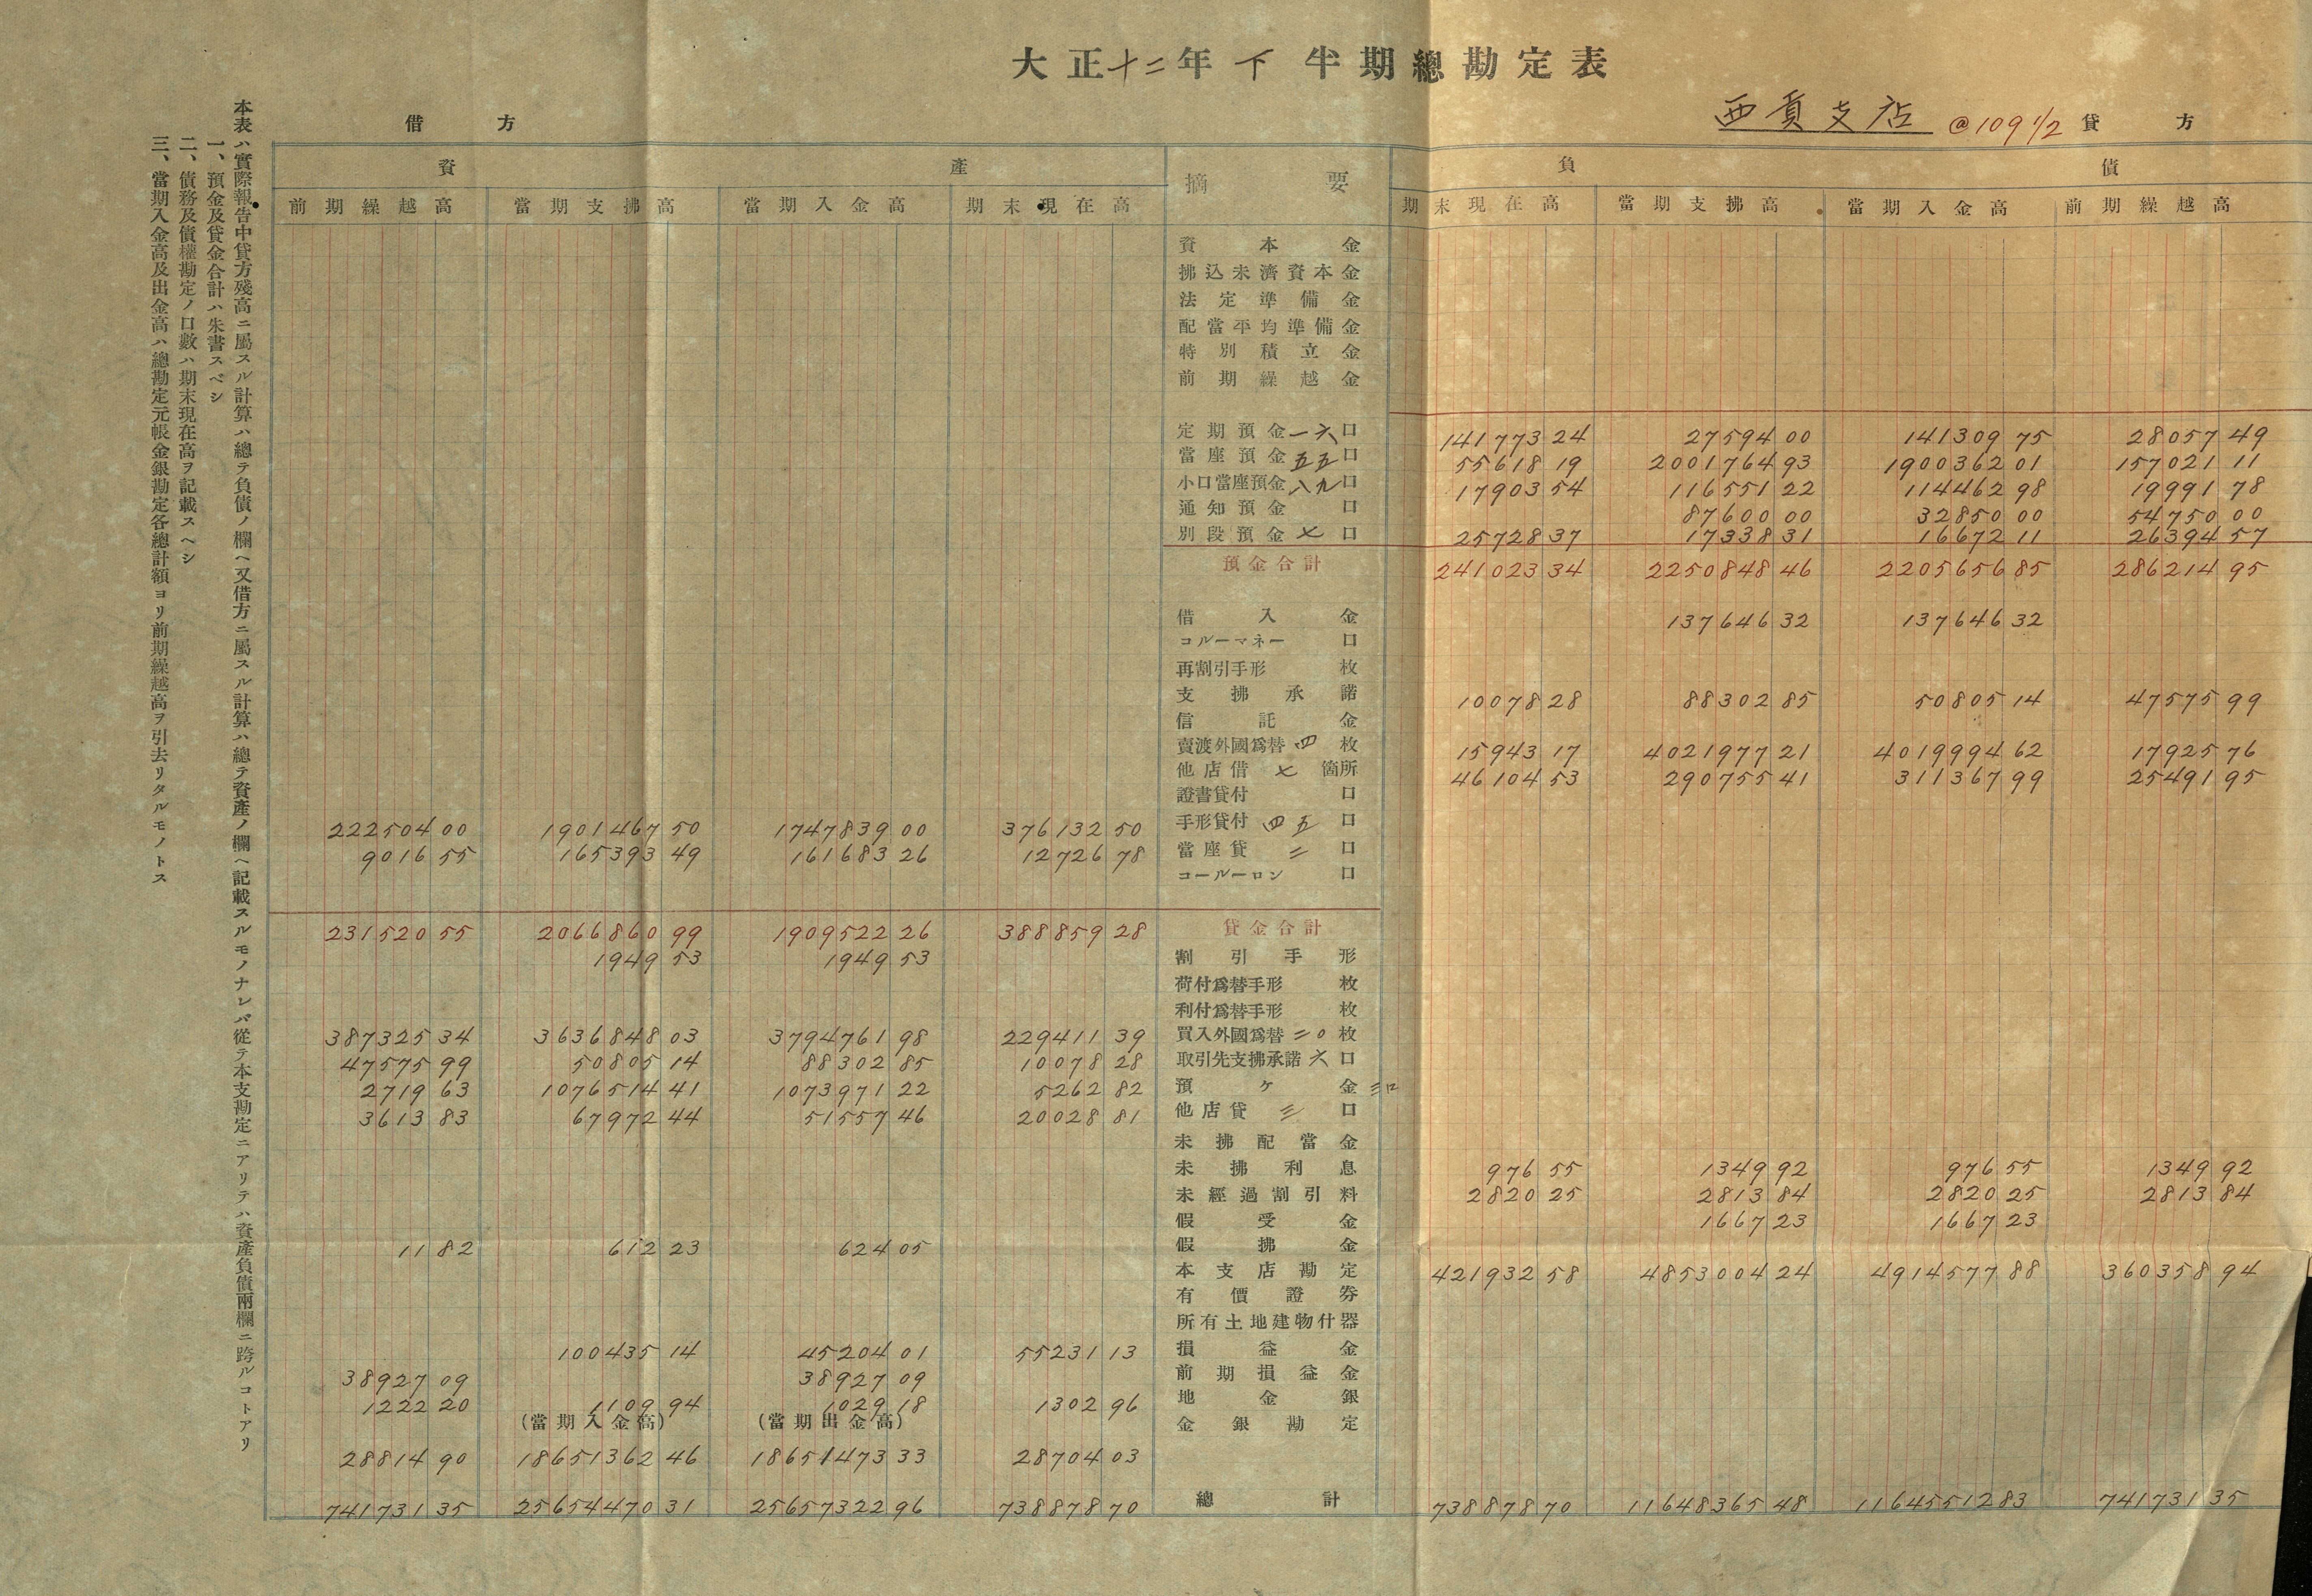 大正十二年下半期總勘定表
西貢支店 @109 1/2 貸方
借方
資產 摘要 負債
前期繰越高 當期支拂高 當期入金高 期末現在高 期末現在高 當期支拂高 當期入金高 前期繰越高
資本金
拂込未濟資本金
法定準備金
配當平均準備金
特別積立金
前期繰越金
定期預金一六口 141773 24 27594 00 141309 75 28057 49
當座預金五五口 55618 19 2001764 93 1900362 01 157021 11
小口當座預金八九口 17903 54 116551 22 114462 98 19991 78
通知預金口 87600 00 32850 00 54750 00
別段預金七口 25728 37 17338 31 16672 11 26394 57
預金合計 241023 34 2250848 46 2205656 85 286214 95
借入金 137646 32 137646 32
コルーマネー口
再割引手形枚
支拂承諾 10078 28 88302 85 50805 14 47575 99
信託金
賣渡外國爲替四枚 15943 17 4021977 21 4019994 62 17925 76
他店借七箇所 46104 53 290755 41 311367 99 25491 95
證書貸付口
222504 00 1901467 50 1747839 00 376132 50 手形貸付四五口
9016 55 165393 49 161683 26 12726 78 當座貸二口
コールーロン口
231520 55 2066860 99 1909522 26 388859 28 貸金合計
1949 53 1949 53 割引手形
荷付爲替手形枚
利付爲替手形枚
387325 34 3636848 03 3794761 98 229411 39 買入外國爲替二〇枚
47575 99 50805 14 88302 85 10078 28 取引先支拂承諾六口
2719 63 1076514 41 1073971 22 5262 82 預ケ金三口
3613 83 67972 44 51557 46 20028 81 他店貸三口
未拂配當金
未拂利息 976 55 1349 92 976 55 1349 92
未經過割引料 2820 25 2813 84 2820 25 2813 84
假受金 1667 23 1667 23
11 82 612 23 624 05 假拂金
本支店勘定 421932 58 4853004 24 4914577 88 360358 94
有價證券
所有土地建物什器
100435 14 45204 01 55231 13 損益金
38927 09 38927 09 前期損益金
1222 20 1109 94 1029 18 1302 96 地金銀
(當期入金高) (當期出金高) 金銀勘定
28814 90 18651362 46 18651473 33 28704 03
741731 35 25654470 31 25657322 96 738878 70 總計 738878 70 11648365 48 11645512 83 741731 35
本表ハ實際報告中貸方殘高ニ屬スル計算ハ總テ負債ノ欄ヘ又借方ニ屬スル計算ハ總テ資產ノ欄ヘ記載スルモノナレバ從テ本支勘定ニアリテハ資產負債兩欄ニ跨ルコトアリ
一、預金及貸金合計ハ朱書スベシ
二、債務及債權勘定ノ口數ハ期末現在高ヲ記載スヘシ
三、當期入金高及出金高ハ總勘定元帳金銀勘定各總計額ヨリ前期繰越高ヲ引去リタルモノトス